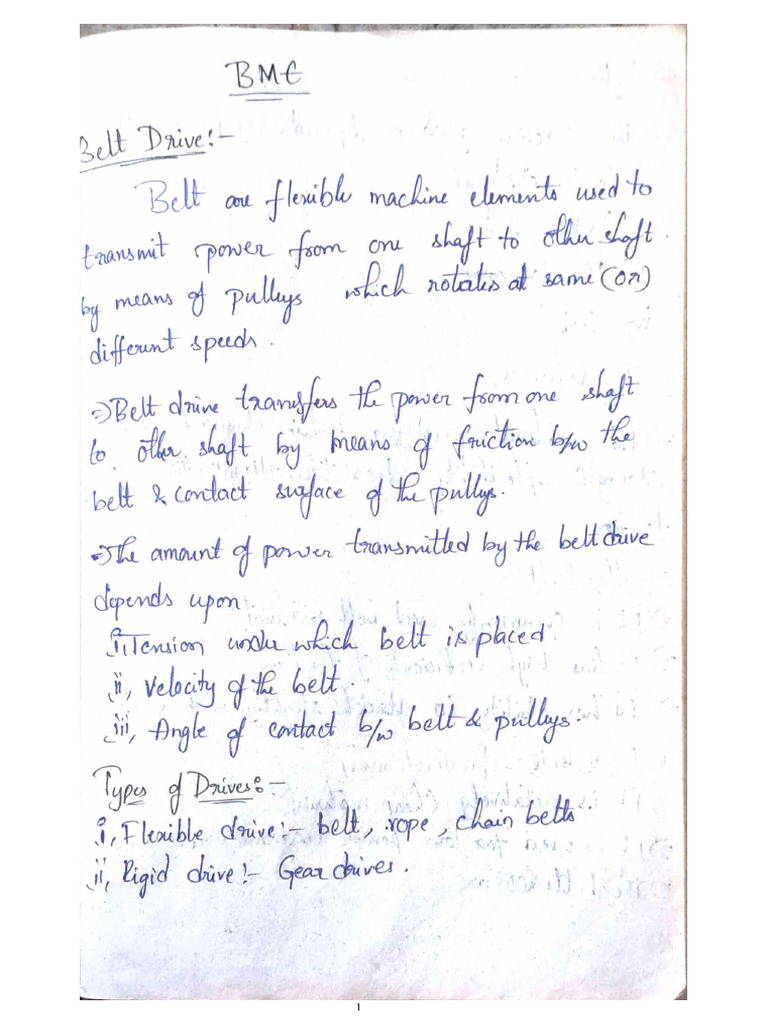 BME
Belt Drive:-
Belt are flexible machine elements used to
transmit power from one shaft to other shaft
by means of pulleys which rotates at same (or)
different speeds.
⇒ Belt drive transfers the power from one shaft
to other shaft by means of friction b/w the
belt & contact surface of the pullys.
⇒ The amount of power transmitted by the belt drive
depends upon.
i, Tension under which belt is placed.
ii, Velocity of the belt.
iii, Angle of contact b/w belt & pulleys.
Types of Drives:-
i, Flexible drive:- belt, rope, chain belts.
ii, Rigid drive:- Gear drives.
1